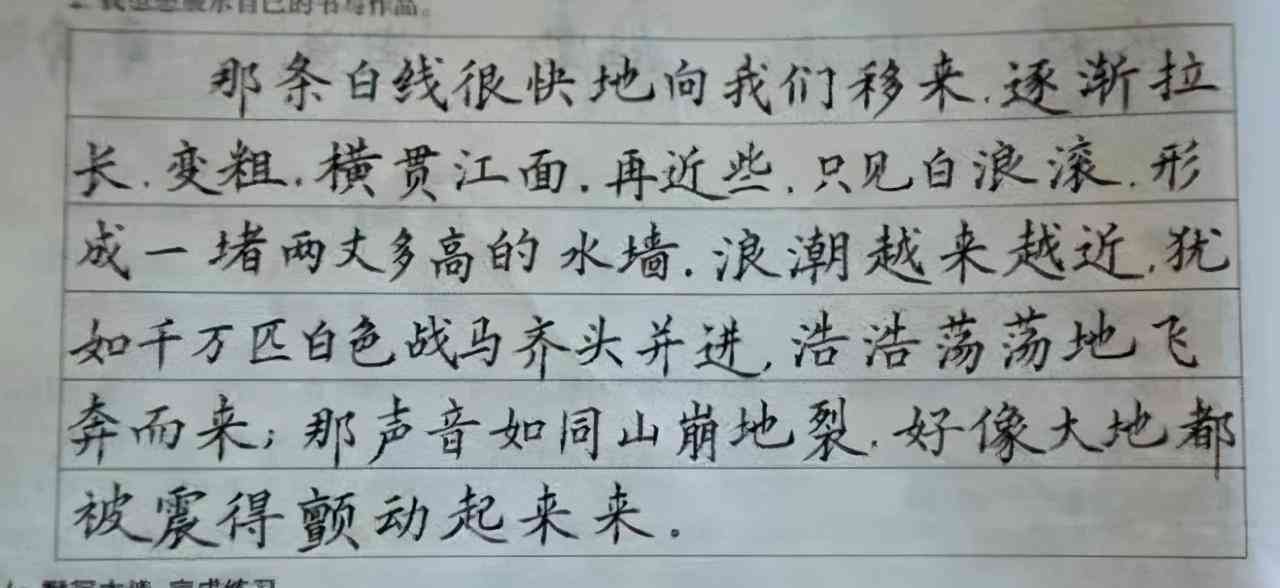 我想想展示自己的书写作品。
那条白线很快地向我们移来,逐渐拉
长,变粗,横贯江面.再近些,只见白浪滚,形
成一堵两丈多高的水墙.浪潮越来越近,犹
如千万匹白色战马齐头并进,浩浩荡荡地飞
奔而来;那声音如同山崩地裂,好像大地都
被震得颤动起来来。